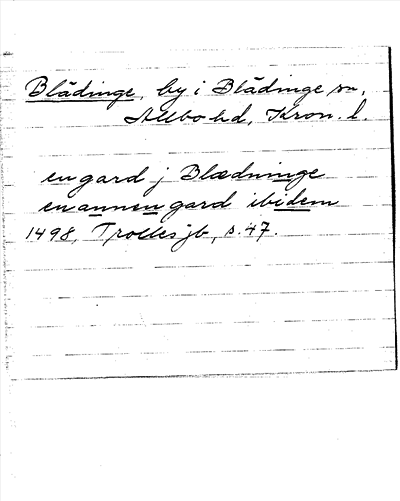 Blädinge, by i Blädinge sn,
Allbo hd, Kron. l.
en gard j Blædninge
en annen gard ibidem
1498, Trolles jb, s. 47.